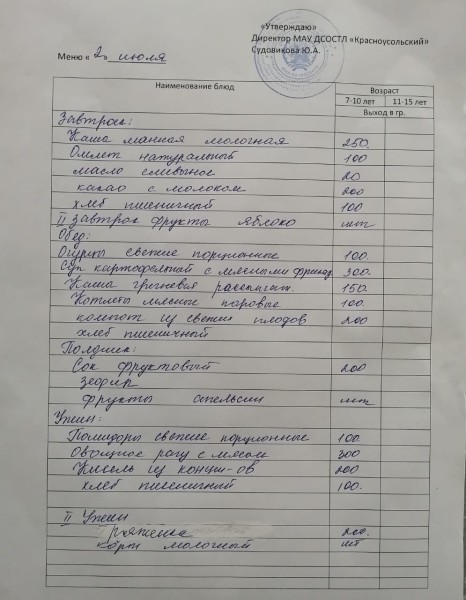 «Утверждаю»
Директор МАУ ДСОСТЛ «Красноусольский»
Судовикова Ю.А.
Меню « 2 » июля
Наименование блюд Возраст
7-10 лет 11-15 лет
Выход в гр.
Завтрак:
Каша манная молочная 250.
Омлет натуральный 100
масло сливочное 20
какао с молоком 200
хлеб пшеничный 100
II Завтрак фрукты яблоко шт
Обед:
Огурцы свежие порционные 100.
Суп картофельный с мясными фрикад. 300.
Каша гречневая рассыпчат. 150.
Котлеты мясные паровые 100.
компот из свежих плодов 200
хлеб пшеничный
Полдник:
Сок фруктовый 200
зефир
фрукты апельсин шт
Ужин:
Помидоры свежие порционные 100.
Овощное рагу с мясом 300
Кисель из конц-ов 200
хлеб пшеничный 100.
II Ужин
ряженка 200.
молочный шт